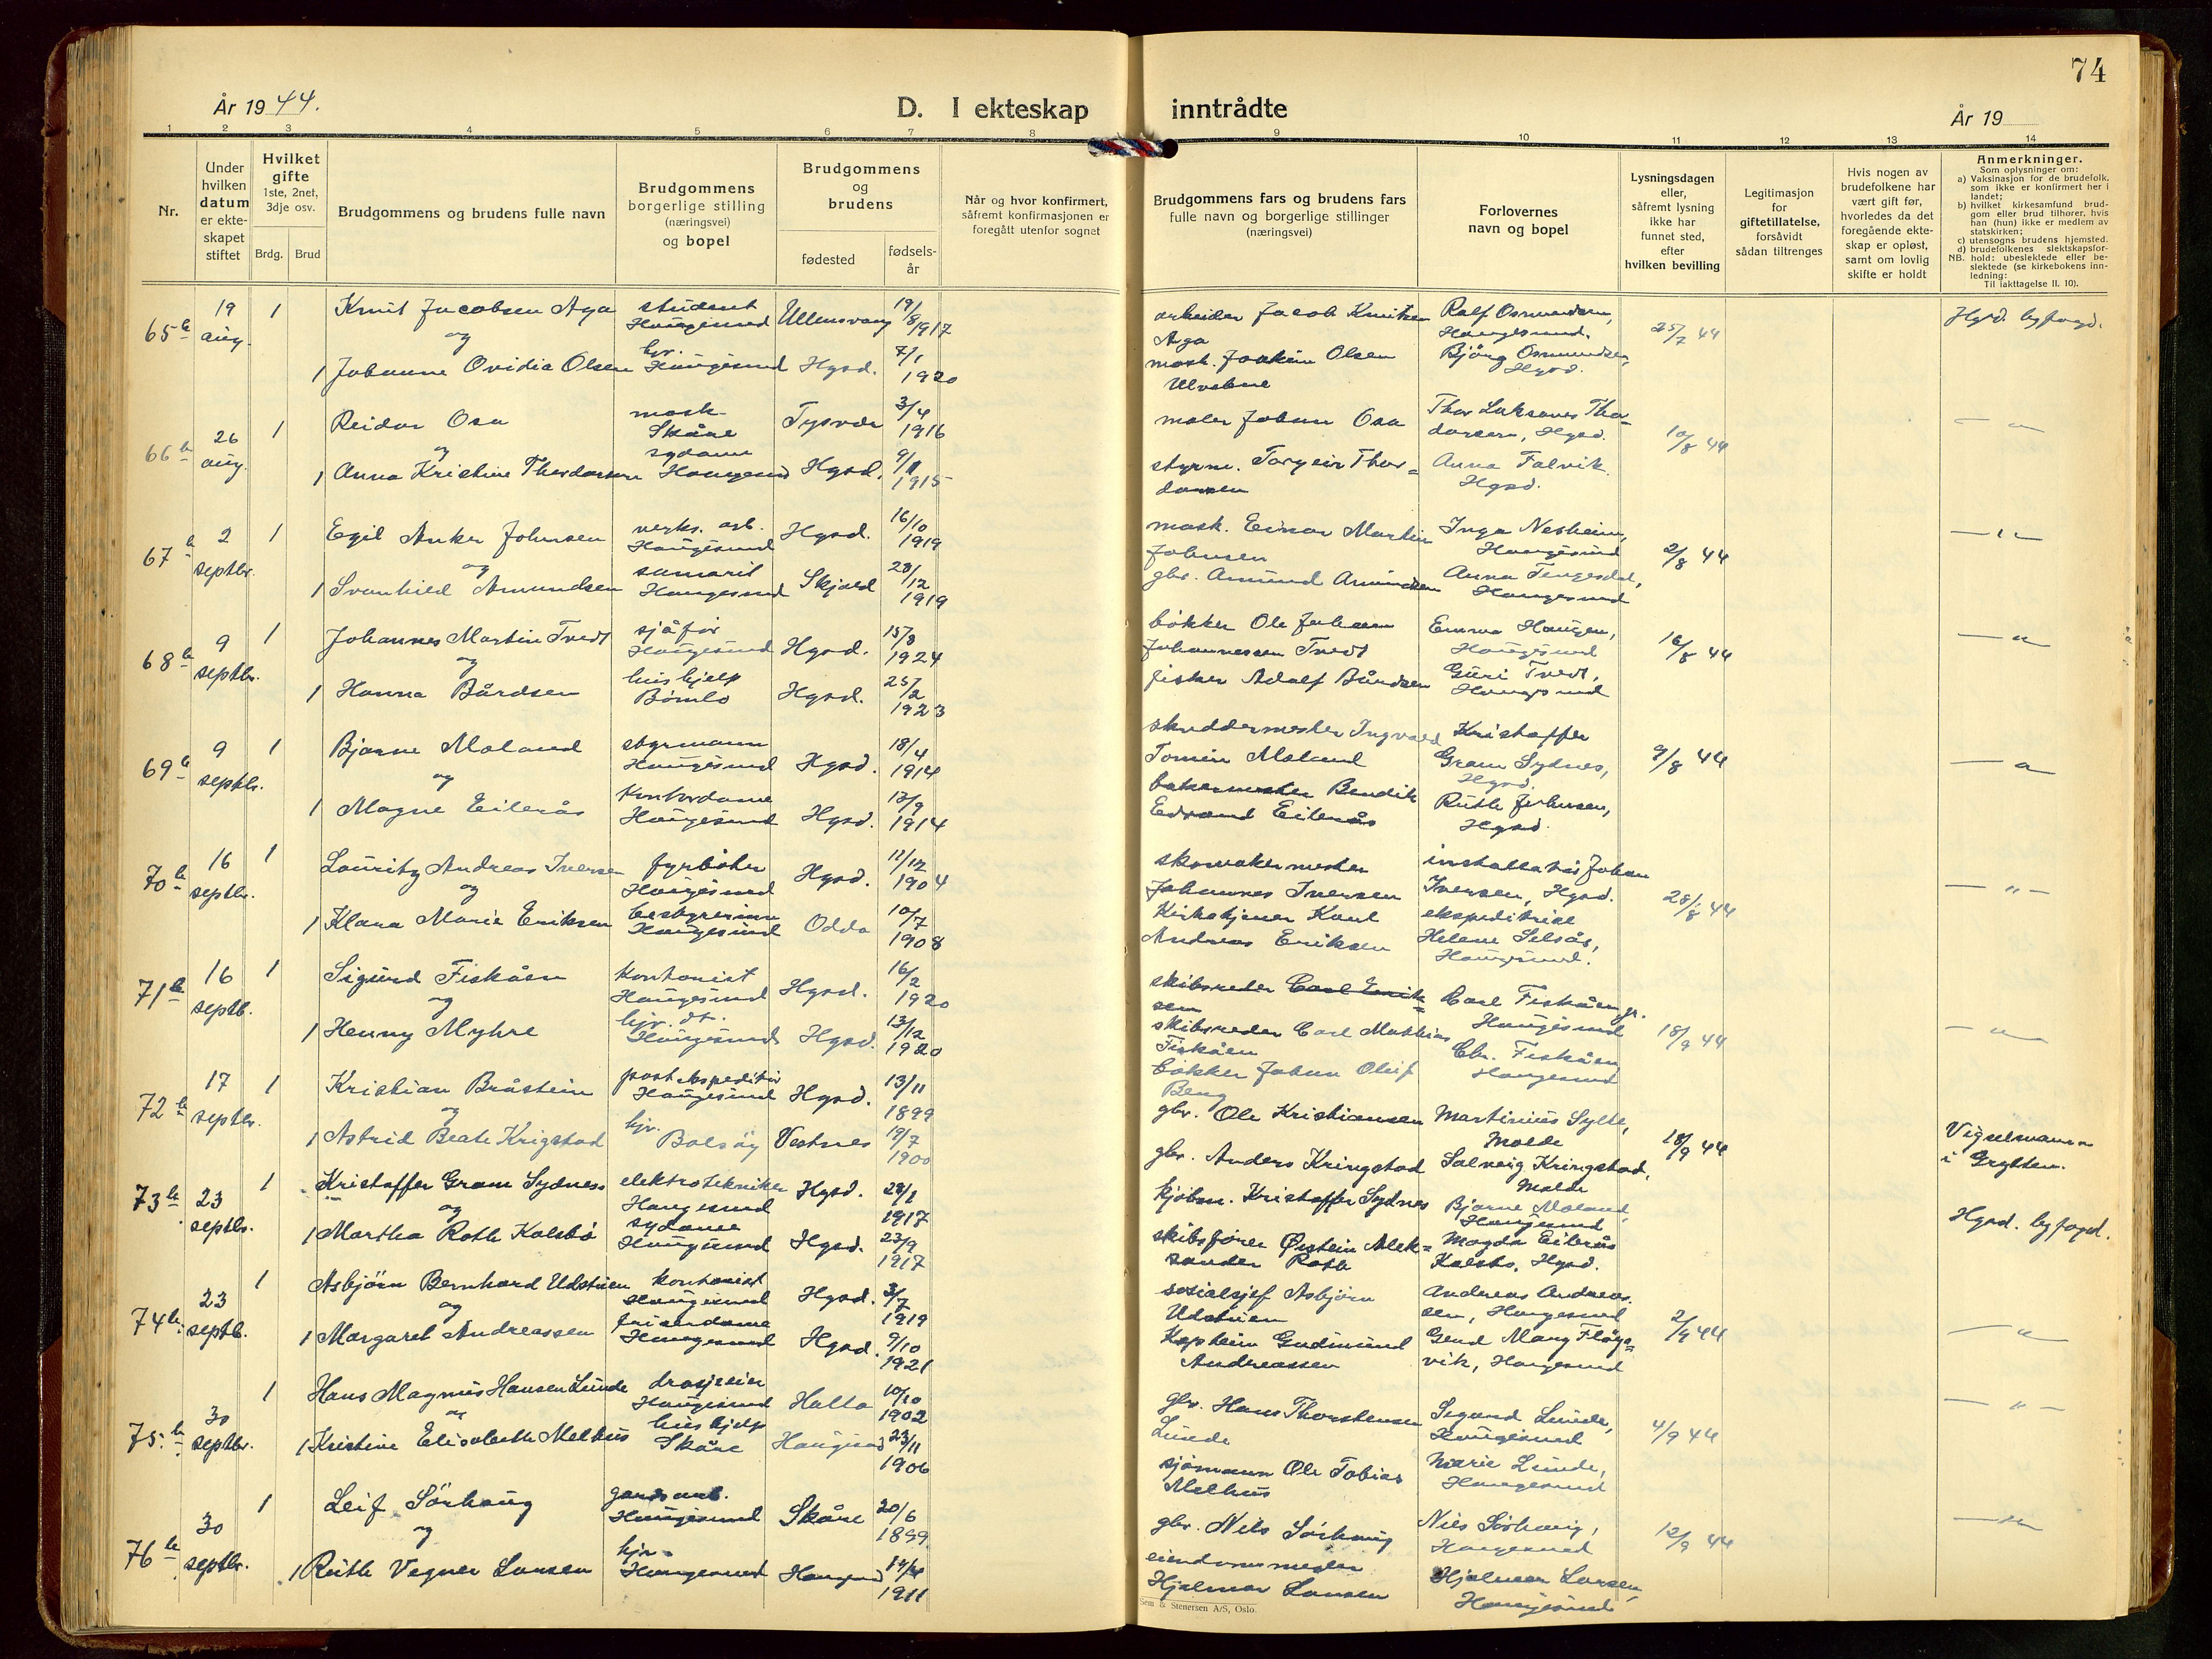 74
År 1944.
D. I ekteskap inntrådte
År 19
1 2 3 4 5 6 7 8 9 10 11 12 13 14
Nr.
Under
hvilken
datum
er ekte-
skapet
stiftet
Hvilket
gifte
1ste, 2net,
3dje osv.
Brdg. Brud
Brudgommens og brudens fulle navn
Brudgommens
borgerlige stilling
(næringsvei)
og bopel
Brudgommens
og
brudens
fødested
fødsels-
år
Når og hvor konfirmert,
såfremt konfirmasjonen er
foregått utenfor sognet
Brudgommens fars og brudens fars
fulle navn og borgerlige stillinger
(næringsvei)
Forlovernes
navn og bopel
Lysningsdagen
eller,
såfremt lysning
ikke har
funnet sted,
efter
hvilken bevilling
Legitimasjon
for
giftetillatelse,
forsåvidt
sådan tiltrenges
Hvis nogen av
brudefolkene har
vært gift før,
hvorledes da det
foregående ekte-
skap er opløst,
samt om lovlig
skifte er holdt
Anmerkninger.
Som oplysninger om:
a) Vaksinasjon for de brudefolk,
som ikke er konfirmert her i
landet;
b) hvilket kirkesamfund brud-
gom eller brud tilhører, hvis
han (hun) ikke er medlem av
statskirken;
c) utensogns brudens hjemsted.
d) brudefolkenes slektskapsfor-
NB. hold: ubeslektede eller be-
slektede (se kirkebokens inn-
ledning:
Til iakttagelse II. 10).
65 b 19 aug. 1 Knut Jacobsen Aga student Haugesund Ullensvang 19/8 1917 arbeider Jacob Knutsen Aga Ralf Osmundsen, Haugesund. 25/7 44 Hgsd. byfogd.
og
1 Johanne Ovidia Olsen hjv. Haugesund Hgsd. 7/1 1920 mask. Joakim Olsen Bjørg Osmundsen, Hgsd.
66 b 26 aug. 1 Reidar Osa mask. Skåre Tysvær 3/4 1916 maler Johan Osa Thordarsen, Hgsd. 10/8 44 — " —
og
1 Anna Kristine Thordarsen sydame Haugesund Hgsd. 1915 styrm. Torgeir Thordarsen Anna Falvik Hgsd.
67 b 2 septbr. 1 Egil Anker Johnsen verks. arb. Haugesund Hgsd. 16/10 1919 mask. Einar Martin Johnsen Inga Nesheim, Haugesund 2/8 44 — " —
og
1 Svanhild Amundsen samarit Haugesund Skjold 28/12 1919 gbr. Amund Amundsen Anna Tengesdal, Haugesund
68 b 9 septbr. 1 Johannes Martin Tvedt sjåfør Haugesund Hgsd. 15/8 1924 bøkker Ole Johan Johannessen Tvedt Emma Haugen, Haugesund 16/8 44 — " —
og
1 Hanna Bårdsen hushjelp Bømlo Hgsd. 25/2 1923 fisker Adolf Bårdsen Guri Tvedt, Haugesund
69 b 9 septbr. 1 Bjarne Moland styrmann Haugesund Hgsd. 18/4 1914 skreddermester Ingvald Tomin Moland Kristoffer Gram Sydnes, Hgsd. 9/8 44 — " —
og
1 Magne Eilerås Kontordame Haugesund Hgsd. 13/9 1914 bakermester Bendik Edvand Eilerås Ruth Johnsen, Hgsd.
70 b 16 septbr. 1 Lauritz Andreas Iversen fyrbøter Haugesund Hgsd. 12/12 1904 skomakermester Johannes Iversen installatør Johan Iversen, Hgsd. 28/8 44 — " —
og
1 Klara Marie Eriksen bestyrerinne Haugesund Odda 10/7 1908 Kirketjener Karl Andreas Eriksen ekspeditrise Helene Selsås, Haugesund.
71 b 16 septb. 1 Sigurd Fiskåen kontorist Haugesund Hgsd. 16/2 1920 skibsreder Carl Eriksen skibsreder Carl Mathias Fiskåen Carl Fiskåen jr. Haugesund 18/9 44 — " —
og
1 Henny Myhre hjv. dt. Haugesund Hgsd. 13/12 1920 Chr. Fiskåen Haugesund
72 b 17 septbr. 1 Kristian Bråstein postekspeditør Haugesund Hgsd. 13/11 1899 bøkker Johan Oluf Berg gbr. Ole Kristiansen Martinius Sylte, Molde 18/9 44 Vigselmann i Grytten.
og
1 Astrid Beate Krigstad hjv. Bolsøy Vestnes 19/7 1900 gbr. Anders Kringstad Solveig Kringstad, Molde
73 b 23 septbr. 1 Kristoffer Gram Sydness elektrotekniker Haugesund Hgsd. 28/1 1917 kjøbm. Kristoffer Sydnes Bjarne Moland, Haugesund Hgsd. byfogd.
og
1 Martha Roth Kolstø sydame Haugesund Hgsd. 23/9 1917 skibsfører Øistein Aleksander Roth Magda Eilerås Kolstø, Hgsd.
74 b 23 septb. 1 Asbjørn Bernhard Udstuen kontorist Haugesund Hgsd. 3/7 1919 sosialsjef Asbjørn Udstuen Andreas Andreassen, Haugesund 2/9 44 — " —
og
1 Margaret Andreassen frisørdame Haugesund Hgsd. 9/10 1921 Kaptein Gudmund Andreassen Gerd Mary Fløgvik, Haugesund
75 b 30 septbr. 1 Hans Magnus Hansen Lunde drosjeeier Haugesund 10/10 1902 gbr. Hans Thorstensen Lunde Sigurd Lunde, Haugesund 4/9 44 — " —
og
1 Kristine Elisabeth Melhus hushjelp Skåre Haugesund 23/11 1906 sjømann Ole Tobias Melhus Marie Lunde, Haugesund
76 b 30 septbr. 1 Leif Sørhaug gardsarb. Haugesund Skåre 20/6 1899 gbr. Nils Sørhaug Nils Sørhaug, Haugesund 12/9 44 — " —
og
1 Ruth Vegner Larsen hjv. Haugesund Haugesund 1911 eiendomsmegler Hjalmar Larsen Hjalmar Larsen, Haugesund
Sem & Stenersen A/S, Oslo.